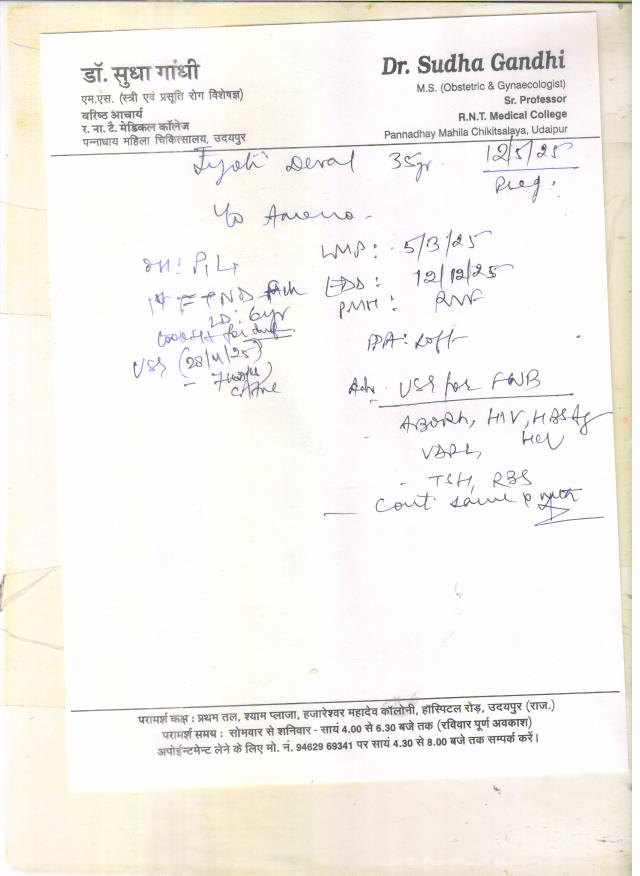 डॉ. सुधा गांधी
एम.एस. (स्त्री एवं प्रसूति रोग विशेषज्ञ)
वरिष्ठ आचार्य
र. ना. टै. मेडिकल कॉलेज
पन्नाधाय महिला चिकित्सालय, उदयपुर
Dr. Sudha Gandhi
M.S. (Obstetric & Gynaecologist)
Sr. Professor
R.N.T. Medical College
Pannadhay Mahila Chikitsalaya, Udaipur
Jyoti 35yr. 12/5/25
Preg.
LMP: 5/3/25
EDD: 12/12/25
PMH:
LD: 6yr
P/A: soft
Adv. USG for FWB
ABORh, HIV, HBSAg
VDRL, HCV
- TSH, RBS
Cont. same
परामर्श कक्ष : प्रथम तल, श्याम प्लाजा, हजारेश्वर महादेव कॉलोनी, हॉस्पिटल रोड़, उदयपुर (राज.)
परामर्श समय : सोमवार से शनिवार - सायं 4.00 से 6.30 बजे तक (रविवार पूर्ण अवकाश)
अपोईन्टमेन्ट लेने के लिए मो. नं. 94629 69341 पर सायं 4.30 से 8.00 बजे तक सम्पर्क करें।